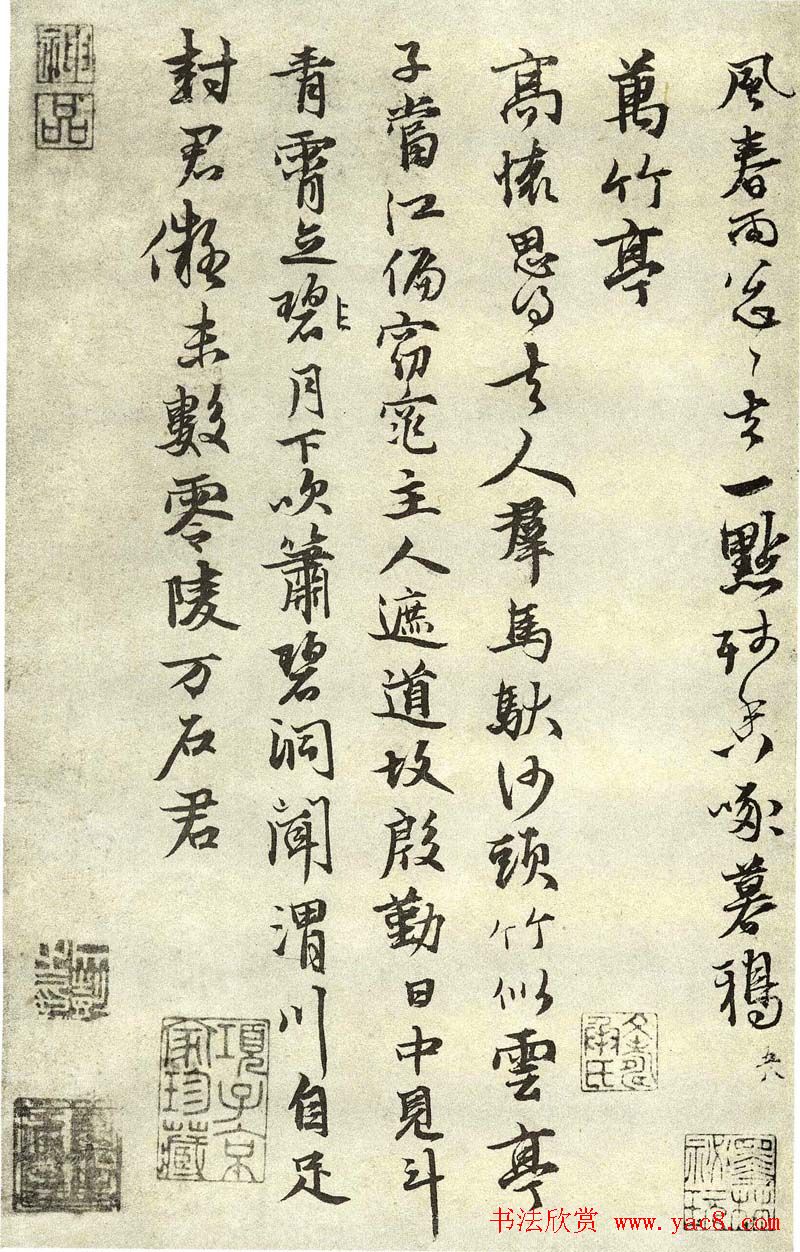 風春雨忩〻去一點殘香啄暮鴉
萬竹亭
高懷思得去人羣馬馱沙頭竹似雲亭
子當江偏窈窕主人遮道故殷勤日中見斗
青霄立碧月下吹簫碧洞聞渭川自足
封君儗未數零陵万石君
神品
項子京
家珍藏
书法欣赏 www.yac8.com